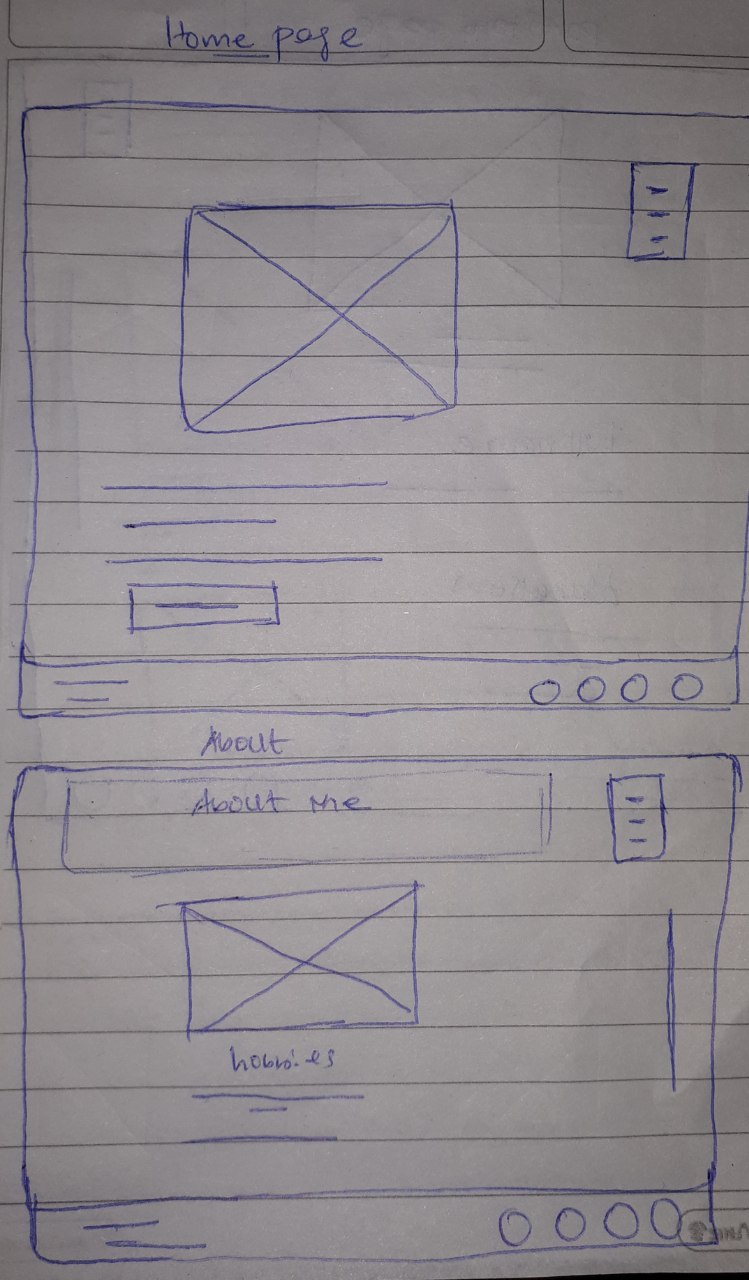 Home page
About
About me
hobbies